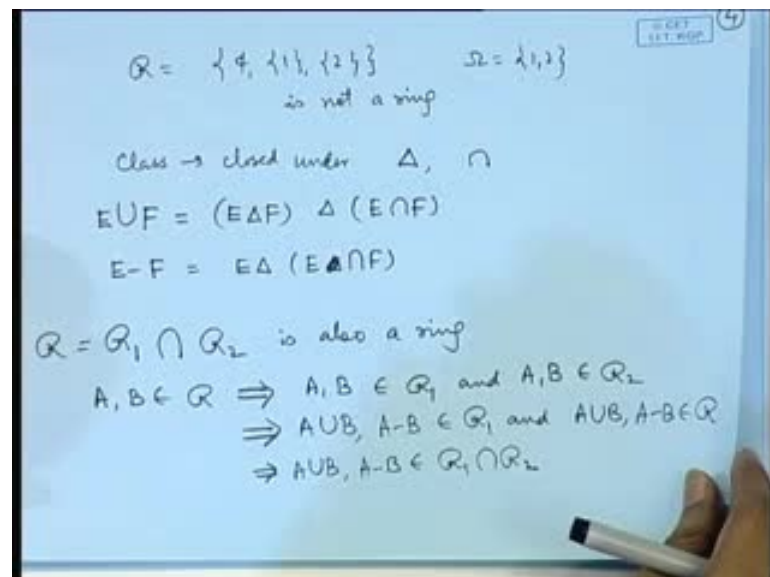 ④
R = {φ, {1}, {2}} Ω = {1,2}
is not a ring
Class → closed under Δ, ∩
E∪F = (EΔF) Δ (E∩F)
E-F = EΔ (E∩F)
R = R₁ ∩ R₂ is also a ring
A, B ∈ R ⇒ A, B ∈ R₁ and A, B ∈ R₂
⇒ A∪B, A-B ∈ R₁ and A∪B, A-B ∈ R
⇒ A∪B, A-B ∈ R₁∩R₂